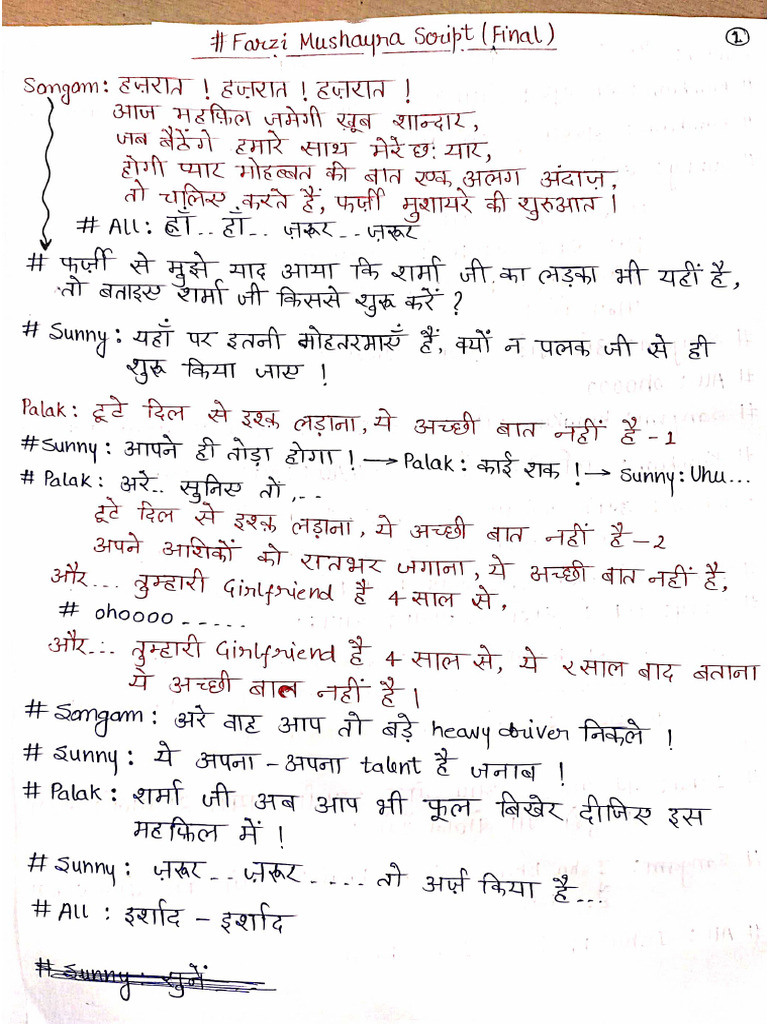 # Farzi Mushayra Script (Final)
1.
Sangam: हज़रात ! हज़रात ! हज़रात !
आज महफ़िल जमेगी ख़ूब शान्दार,
जब बैठेंगे हमारे साथ मेरे छः यार,
होगी प्यार मोहब्बत की बात एक अलग अंदाज़,
तो चलिए करते हैं, फर्ज़ी मुशायरे की शुरुआत।
# All: हाँ.. हाँ.. ज़रूर.. ज़रूर
# फर्ज़ी से मुझे याद आया कि शर्मा जी का लड़का भी यहीं है,
तो बताइए शर्मा जी किससे शुरू करें ?
# Sunny: यहाँ पर इतनी मोहतरमाएँ हैं, क्यों न पलक जी से ही
शुरू किया जाए !
Palak: टूटे दिल से इश्क़ लड़ाना, ये अच्छी बात नहीं है -1
# Sunny: आपने ही तोड़ा होगा ! → Palak: काई शक ! → Sunny: Uhu...
# Palak: अरे.. सुनिए तो,..
टूटे दिल से इश्क़ लड़ाना, ये अच्छी बात नहीं है -2
अपने आशिकों को रातभर जगाना, ये अच्छी बात नहीं है,
और... तुम्हारी Girlfriend है 4 साल से,
# ohoooo -----
और... तुम्हारी Girlfriend है 4 साल से, ये २ साल बाद बताना
ये अच्छी बात नहीं है।
# Sangam: अरे वाह आप तो बड़े heavy driver निकले !
# Sunny: ये अपना-अपना talent है जनाब !
# Palak: शर्मा जी अब आप भी फूल बिखेर दीजिए इस
महफ़िल में !
# Sunny: ज़रूर.. ज़रूर.... तो अर्ज़ किया है...
# All: इर्शाद - इर्शाद
# Sunny: सुनें